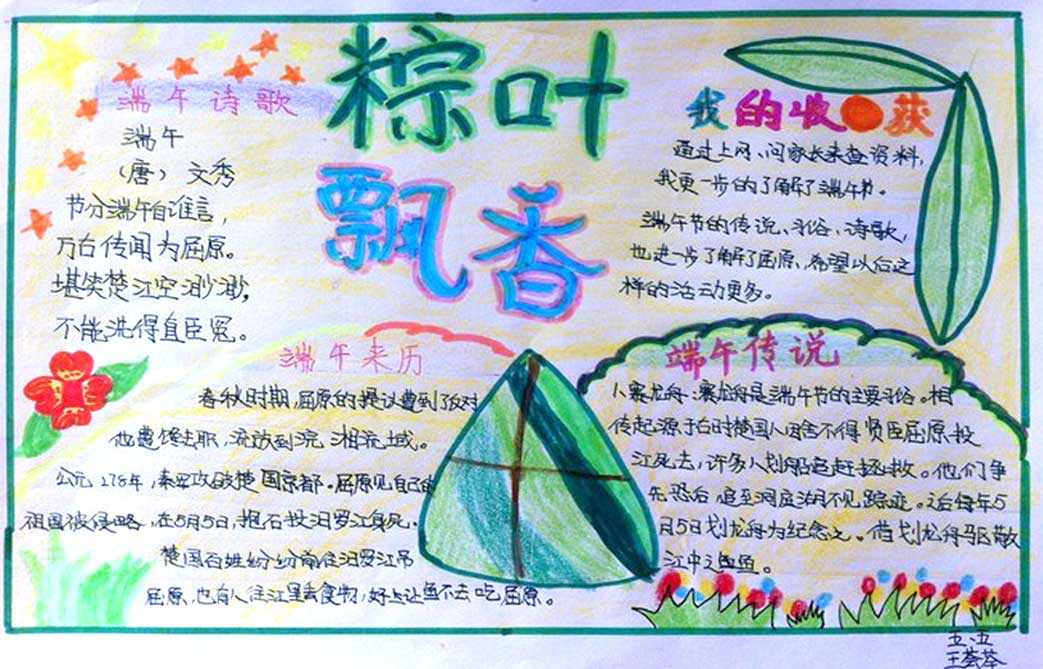 粽叶
飘香
端午诗歌
端午
（唐） 文秀
节分端午自谁言，
万古传闻为屈原。
堪笑楚江空渺渺，
不能洗得直臣冤。
我的收获
通过上网、问家长来查资料，
我更一步的了解了端午节。
端午节的传说、习俗、诗歌，
也进一步了解了屈原，希望以后这
样的活动更多。
端午来历
春秋时期，屈原的提议遭到了反对
他遭馋去职，流放到沅、湘流域。
公元278年，秦军攻破楚国京都。屈原见自己的
祖国被侵略，在5月5日，抱石投汨罗江身死，
楚国百姓纷纷前往汨罗江吊
屈原，也有人往江里丢食物，好让鱼不去吃屈原。
端午传说
1、赛龙舟：赛龙舟是端午节的主要习俗。相
传起源于古时楚国人因舍不得贤臣屈原投
江死去，许多人划船追赶拯救。他们争
先恐后，追至洞庭湖不见踪迹。之后每年5
月5日划龙舟为纪念之。借划龙舟驱散
江中之鱼。
五.五